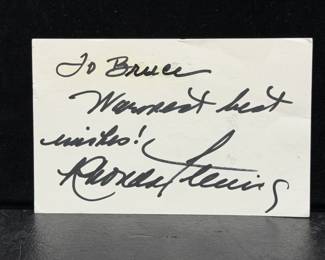 To Bruce
Warmest best
wishes!
Rhonda Fleming